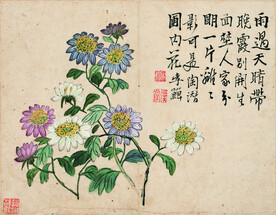 雨過天晴帶
晚霞別開生
面壁人家分
明一片離〻
影可是陶潛
圃内花